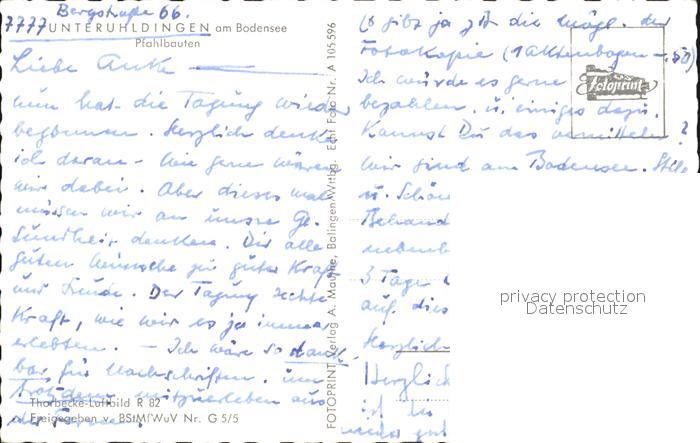 Bergstraße 66.
7777 UNTERUHLDINGEN am Bodensee
Pfahlbauten
Liebe Anke
nun hat die Tagung wieder
begonnen. Herzlich denke
ich daran - wie gerne wären
wir dabei. Aber dieses mal
müssen wir an unsre Ge-
sundheit denken. Dir alle
guten Wünsche zu guter Kraft
und Freude. Der Tagung rechte
Kraft, wie wir es ja immer
erlebten. - Ich wäre so dank-
bar für Nachschriften, um
trotzdem mitzuerleben aus
der Ferne.
Thorbecke-Luftbild R 82
Freigegeben v. BStMfWuV Nr. G 5/5
FOTOPRINT Verlag A. Mauthe, Balingen/Wttbg. Echt Foto Nr. A 105.596
Es gibt ja jetzt die Mögl. der
Fotokopie (1 Aktenbogen -.50)
Ich würde es gerne
bezahlen u. einiges dazu.
Kannst Du das vermitteln?
Wir sind am Bodensee. Stille
u. Schön
Behand
nebenb
3 Tage
auf dies
Herzlich
Herzlich
ist
Fotoprint
privacy protection
Datenschutz